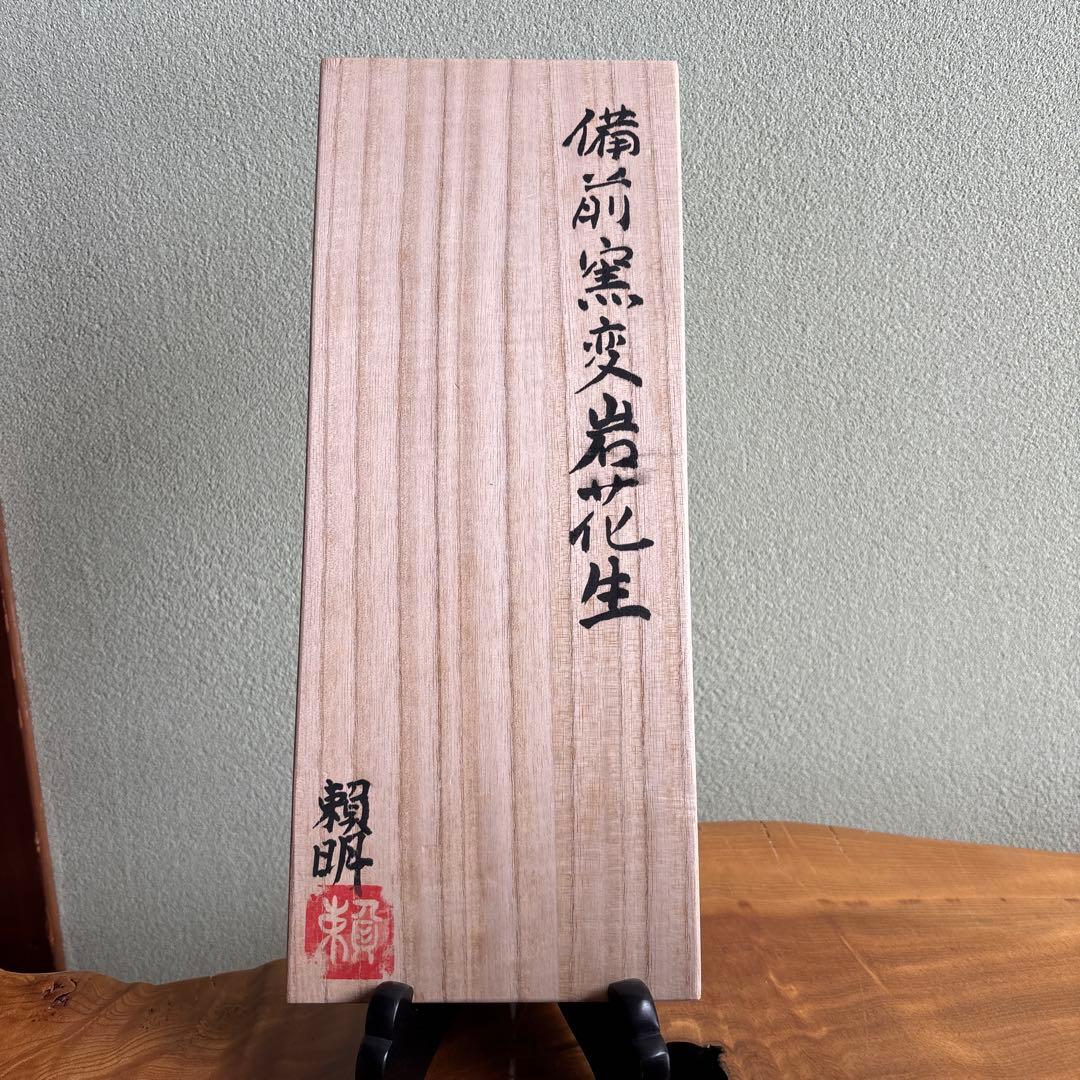 備前窯変岩花生
頼明
頼